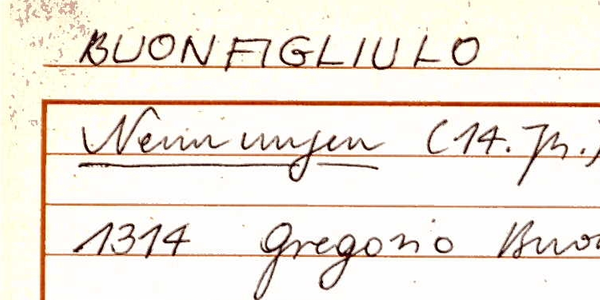 BUONFIGLIULO
Nennungen (14. Jh.)
1314 Gregorio Buon